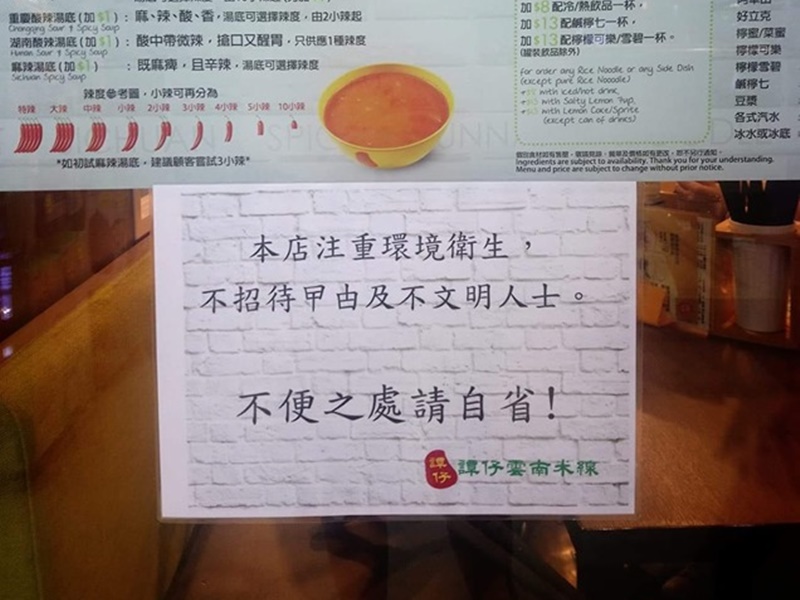 重慶酸辣湯底(加 $1)：麻、辣、酸、香，湯底可選擇辣度，由2小辣起
Chongqing Sour & Spicy Soup
湖南酸辣湯底(加 $1)：酸中帶微辣，搶口又醒胃，只供應1種辣度
Hunan Sour & Spicy Soup
麻辣湯底(加 $1)：既麻痹，且辛辣，湯底可選擇辣度
Sichuan Spicy Soup
辣度參考圖，小辣可再分為
特辣 大辣 中辣 小辣 2小辣 3小辣 4小辣 5小辣 10小辣
*如初試麻辣湯底，建議顧客嘗試3小辣*
加 $8 配冷/熱飲品一杯，
加 $13 配鹹檸七一杯，
加 $13 配檸檬可樂/雪碧一杯。
(罐裝飲品除外)
for order any Rice Noodle or any Side Dish
(except pure Rice Nooodle)
with iced/hot drink,
with Salty Lemon 7up,
with Lemon Coce/Sprite
(except can of drinks)
好立克
檸蜜/菜蜜
檸檬可樂
檸檬雪碧
鹹檸七
豆漿
各式汽水
冰水或冰底
Ingredients are subject to availability. Thank you for your understanding.
Menu and price are subject to change without prior notice.
本店注重環境衛生，
不招待曱甴及不文明人士。
不便之處請自省!
譚仔 譚仔雲南米線